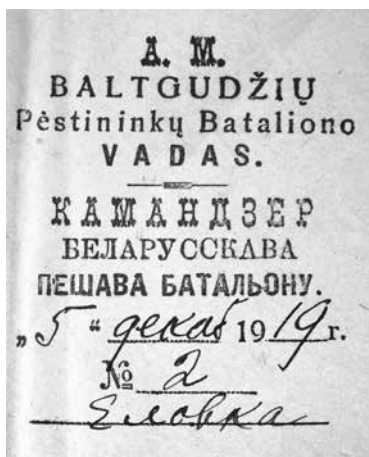 A. M.
BALTGUDŽIŲ
Pėstininkų Bataliono
VADAS.
КАМАНДЗЕР
БЕЛАРУССКАВА
ПЕШАВА БАТАЛЬОНУ.
„5“ декаб 1919 г.
№ 2
Еловка